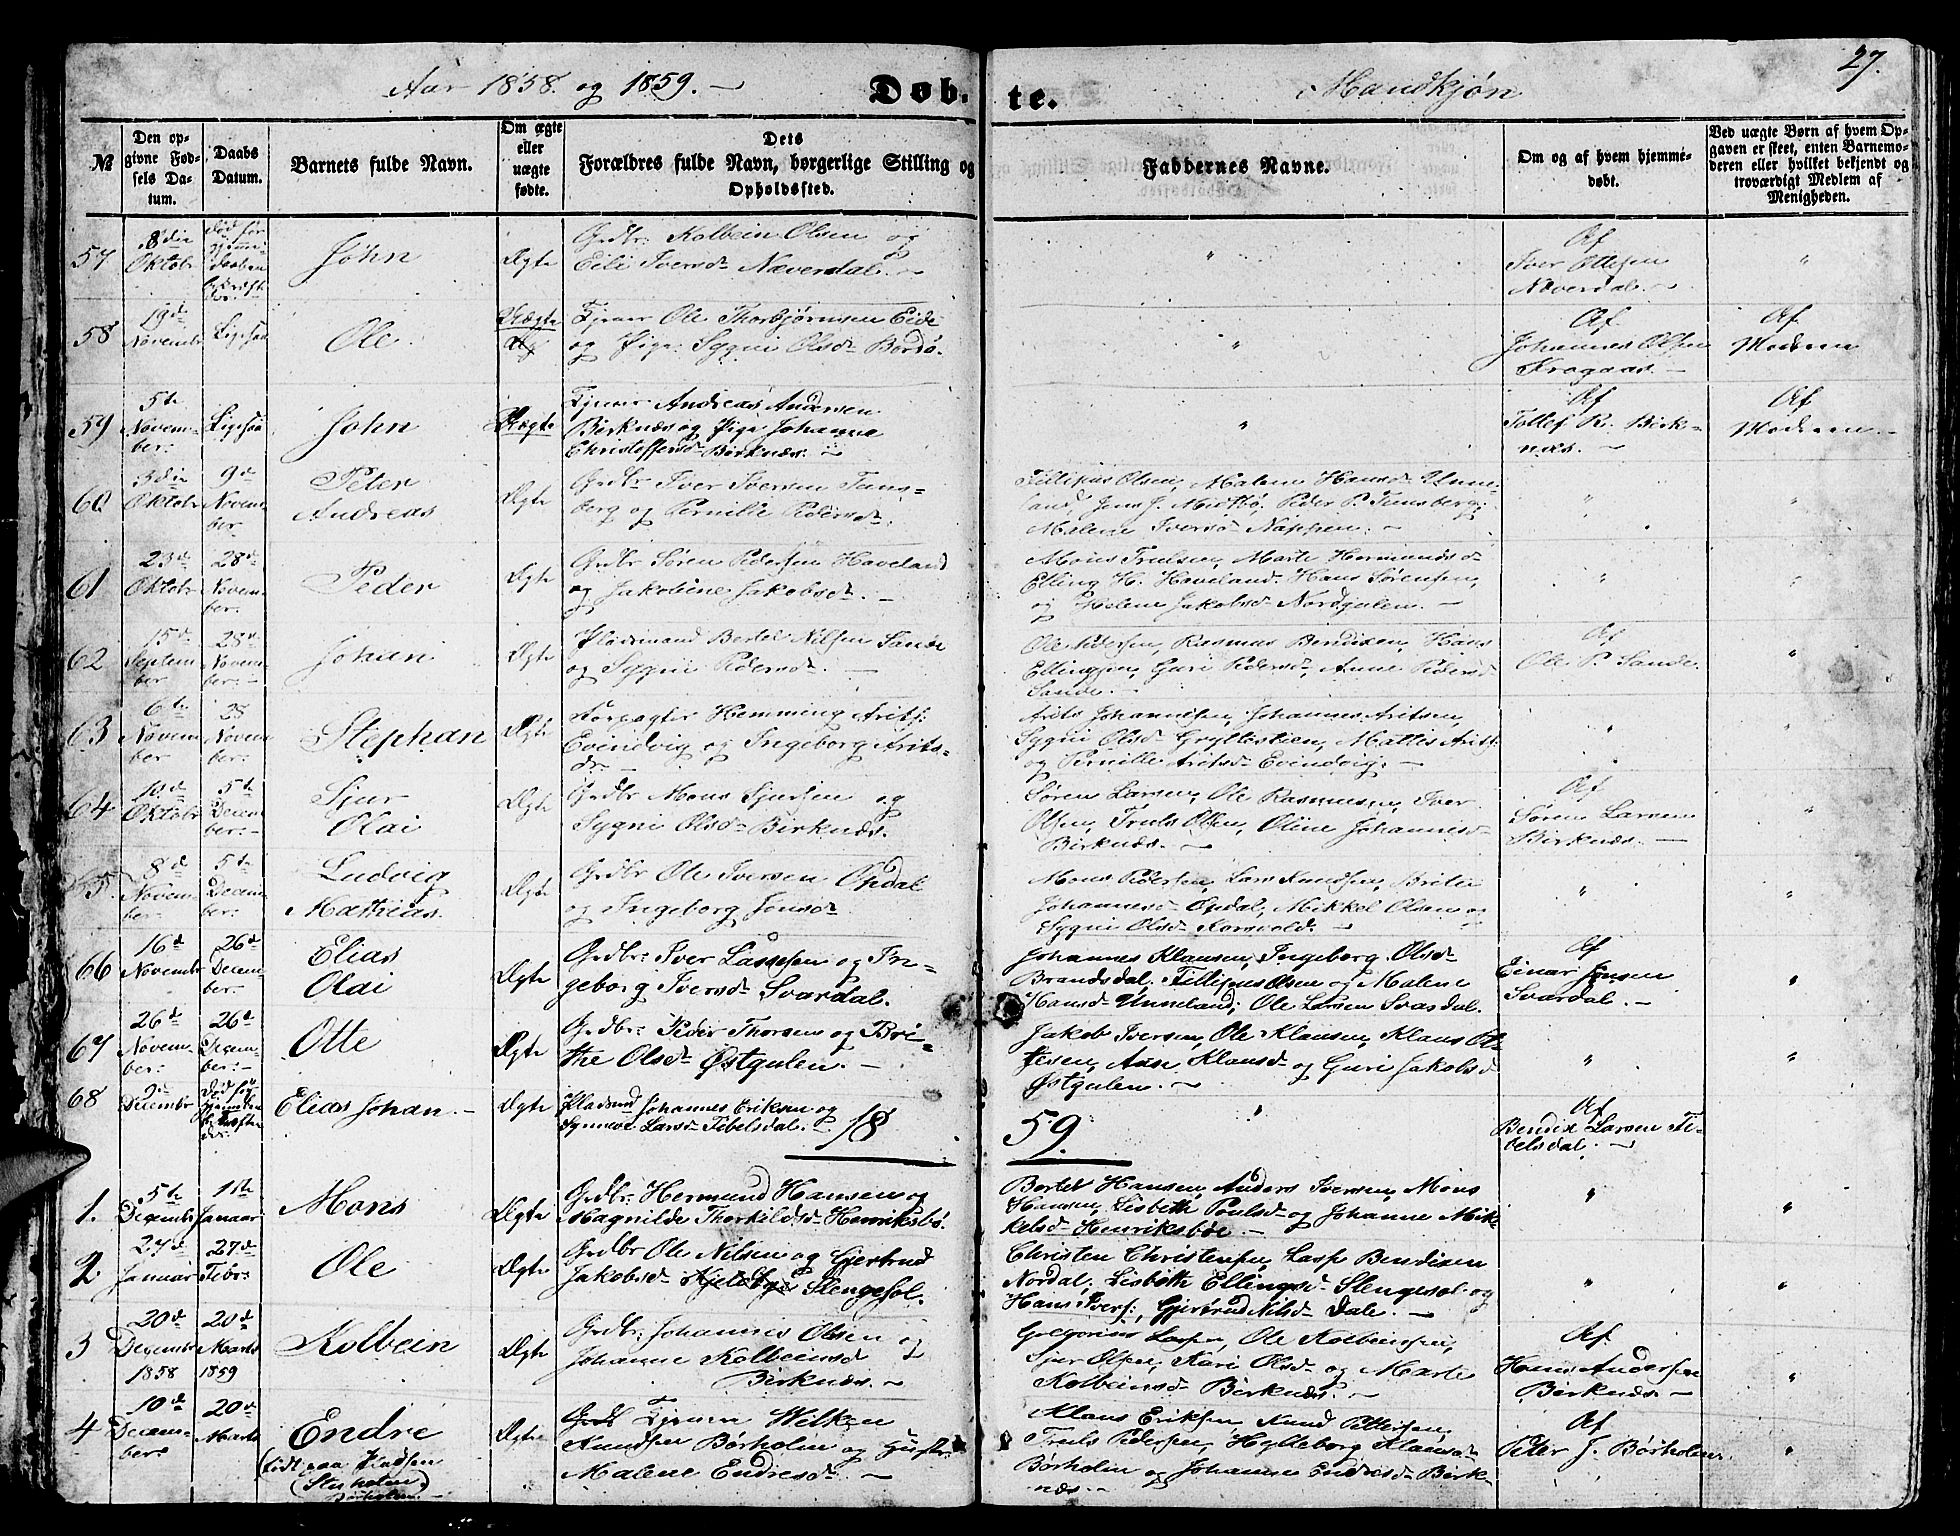 27.
Aar 1858. og 1859. —
Døb-
te.
Mandkjøn
№
Den op-
givne Fød-
sels Da-
tum.
Daabs
Datum.
Barnets fulde Navn.
Om ægte
eller
uægte
fødte.
Dets
Forældres fulde Navn, borgerlige Stilling og
Opholdssted.
Faddernes Navne.
Om og af hvem hjemme-
døbt.
Ved uægte Børn af hvem Op-
gaven er skeet, enten Barnemo-
deren eller hvilket bekjendt og
troværdigt Medlem af
Menigheden.
57
8de
Oktobr
død før
hjemme
daaben
bekræft
des.
John
Ægte
Grdbr: Kolbein Olsen og
Eili Iversd Næverdal. —
"
Af
Iver Ottesen
Næverdal. —
"
58
19d
Novembr
Ligesaa
Ole
Uægte
Tjener Ole Thorbjørnsen Eide
og Pige Sygni Olsd Bordø.
"
Af
Johannes Olsen
Kragaas. —
Af
Moderen
59
5te
Novem-
ber
Ligesaa
John
Uægte
Tjener Andreas Andersen
Birknæs og Pige Johanne
Christoffersd Birknæs. —
"
Af
Tollef R. Birk-
næs. —
Af
Moderen. —
60
3die
Oktobr
9d
Novem-
ber
Peter
Andreas
Ægte
Grdbr Iver Iversen Tans-
berg og Pernille Pedersd.
Fillipus Olsen, Malene Hansd Unne-
land, Jens J. Midtbø, Peder P. Tunsberg,
Malene Iversd Nappen. —
"
"
61
23d
Oktobr
28d
Novem-
ber:
Peder
Ægte
Grdbr Søren Pedersen Haveland
og Jakobine Jakobsd. —
Mons Trulsen, Marte Hermundsd
Elling H. Haveland. Hans Sørensen,
og Helene Jakobsd Nordgulen. —
"
"
62
15d
Septem-
ber
28d
Novem-
ber:
Johan
Ægte
Pladsmand Bertel Nilsen Sande
og Sygni Pedersd. —
Ole Pedersen, Rasmus Bendixen, Hans
Ellingsen, Guri Pedersd, Anne Pedersd
Sande. —
Af
Ole P. Sande.
"
63
6te
Novem
ber
28
Novem
ber:
Stephan
Ægte
Forpagter Hemming Aritsf:
Evindvig og Ingeborg Arits-
dr. —
Arits Johannesen, Johannes Aritsen,
Sygni Olsd Gryltestien, Mattis Aritsf:
og Pernille Aritsd Evindvig. —
"
"
64
10d
Oktobr
5te
Decem
ber: —
Sjur
Olai
Ægte
Grdbr Mons Sjursen og
Sygni Olsd Birknæs.
Søren Larsen, Ole Rasmusen, Iver
Olsen, Truls Olsen, Oline Johannesd
Birknæs. —
Af
Søren Larsen
Birknæs. —
"
65.
8d
Novem-
ber:
5te
Decem
ber:
Ludvig
Mathias.
Ægte
Grdbr Ole Iversen Opdal
og Ingeborg Jonsd
Mons Pedersen, Lars Knudsen, Brite
Johannesd Opdal, Mikkel Olsen og
Sygni Olsd Korsvold. —
"
"
66
16d
Novembr
26d
Decem-
ber:
Elias
Olai
Ægte
Grdbr: Iver Lassesen og In-
geborg Iversd Svardal.
Johannes Klausen, Ingeborg Olsd
Brandsdal, Fillipus Olsen og Malene
Hansd Unneland; Ole Larsen Svardal.
Af
Einar Jensen
Svardal. —
"
67
26d
Novem-
ber:
26d
Decem-
ber: —
Otte
Ægte
Grdbr: Peder Thorsen og Bri-
the Olsd Østgulen. —
Jakob Iversen, Ole Klausen, Klaus Ot-
tesen, Anne Klausd og Guri Jakobsd
Østgulen. —
"
"
68
2d
Decembr
Elias Johan. —
Ægte
Pladsmd Johannes Eriksen og
Synneve Larsd Tibelsdal.
"
Af
Bendix Larsen Ti-
belsdal. —
18
59.
1.
5te
Decembr
1ste
Januar
Mons
Ægte
Grdbr: Hermund Hansen og
Magnilde Thorkildsd Henriksbø.
Bertel Hansen, Anders Iversen, Mons
Hansen, Lisbeth Poulsd og Johanne Mik-
kelsd Henriksbøe. —
"
"
2
27d
Januar
27d
Febr:
Ole
Ægte
Grdbr Ole Nilsen og Gjertrud
Jakobsd Slengesol.
Christen Christensen, Lasse Bendixen
Nordal; Lisbeth Ellingsd Slengesol og
Hans Iversf; Gjertrud Nilsd Dale. —
"
"
3
20d
Decembr
1858
20d
Marts
1859
Kolbein
Ægte
Grdbr: Johannes Olsen og
Johanne Kolbeinsd
Birknæs. —
Gregorius Lassen, Ole Kolbeinsen,
Sjur Olsen, Kari Olsd og Marte
Kolbeinsd Birknæs. —
Af
Hans Andersen
Birknæs —
"
4
10d
Decem-
ber
20d
Marts
Endre
(födt paa Pladsen
Børholm. —
Ægte
Tjener Wilken
Knudsen Børholm og Hustr:
Malene Endresd. —
Klaus Eriksen, Knud Pettersen,
Truls Pedersen, Hylleborg Klausd
Børholm og Johanne Endresd Birk-
næs. —
Af
Peter J. Børholm.
"